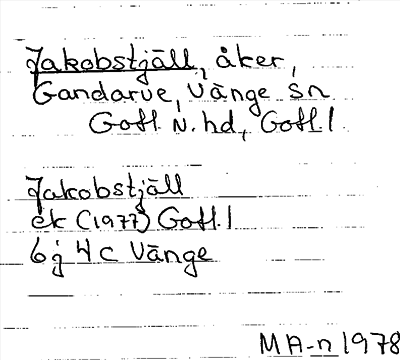 Jakobstjäll, åker,
Gandarve, Vänge sn
Gotl. N. hd, Gotl. l
Jakobstjäll
ek (1977) Gotl. l
6j 4c Vänge
MA-n 1978